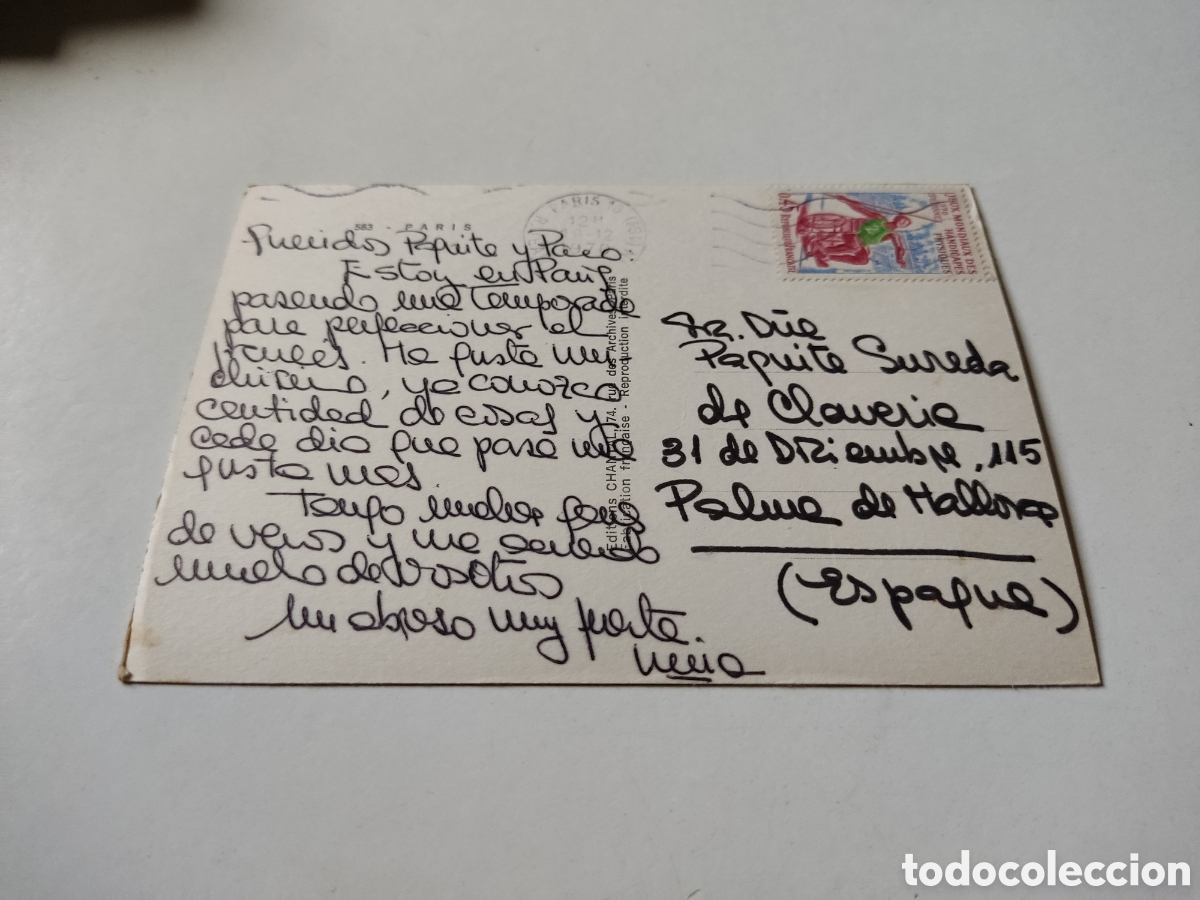 583 - PARIS
Queridos Paquita y Paco:
Estoy en París
pasando una temporada
para perfeccionar el
francés. Me gusta mu
chísimo, ya conozco
cantidad de cosas y
cada dia que pasa me
gusta mas.
Tengo muchas ganas
de veros y me acuerdo
mucho de vosotros
Un abrazo muy fuerte.
Editions CHANTAL, 74, rue des Archives, Paris
Fabrication française - Reproduction interdite
PARIS
JEUX MONDIAUX DES
HANDICAPÉS
PHYSIQUES
0,45 REPUBLIQUE FRANÇAISE
Sra. Dña
Paquita Sureda
de Claveria
31 de Diziembre, 115
Palma de Mallorca
(Espagne)
todocoleccion